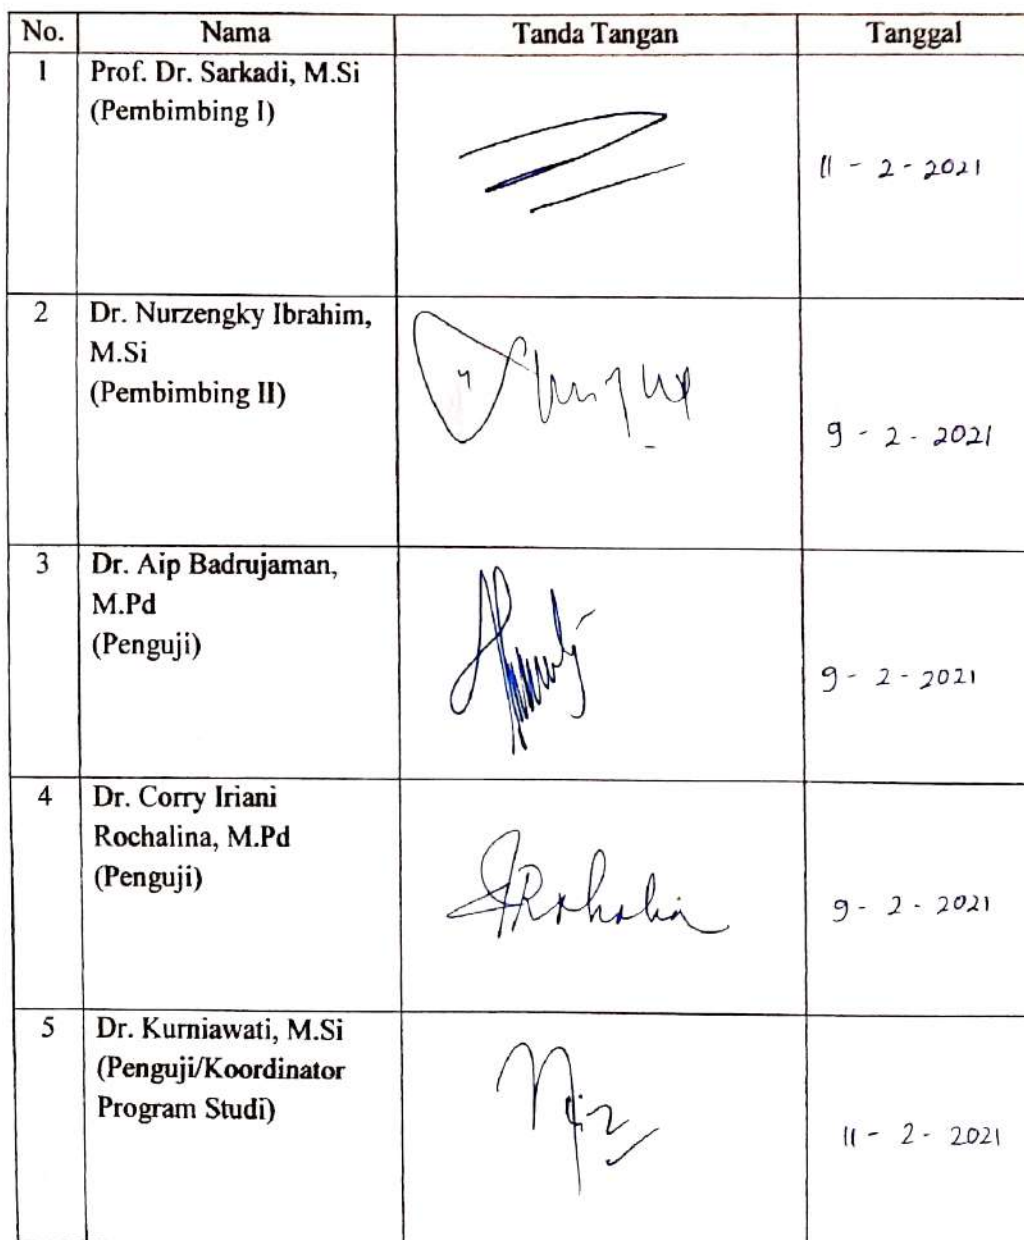 No. Nama Tanda Tangan Tanggal
1 Prof. Dr. Sarkadi, M.Si
(Pembimbing I)
11 - 2 - 2021
2 Dr. Nurzengky Ibrahim,
M.Si
(Pembimbing II)
9 - 2 - 2021
3 Dr. Aip Badrujaman,
M.Pd
(Penguji)
9 - 2 - 2021
4 Dr. Corry Iriani
Rochalina, M.Pd
(Penguji)
9 - 2 - 2021
5 Dr. Kurniawati, M.Si
(Penguji/Koordinator
Program Studi)
11 - 2 - 2021